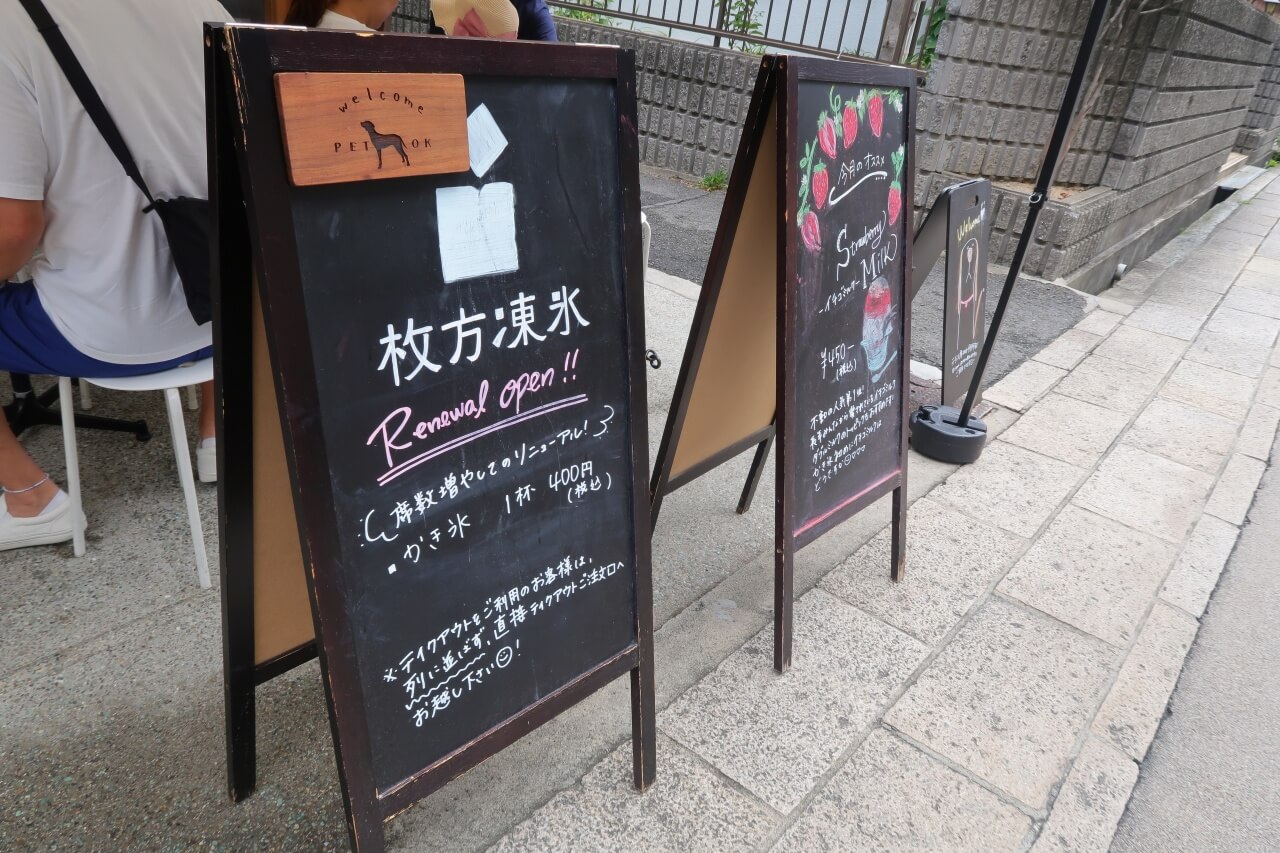 welcome
PET OK
枚方凍氷
Renewal open!!
席数増やしてのリニューアル!
・かき氷 1杯 400円
(税込)
※テイクアウトをご利用のお客様は、
列に並ばず、直接テイクアウトご注文口へ
お越し下さい☺!
今月のオススメ
Strawberry
Milk
-イチゴミルク-
¥450-
(税込)
不動の人気第1位!
かき氷初めにイチゴミルク
どうぞ
Welcome